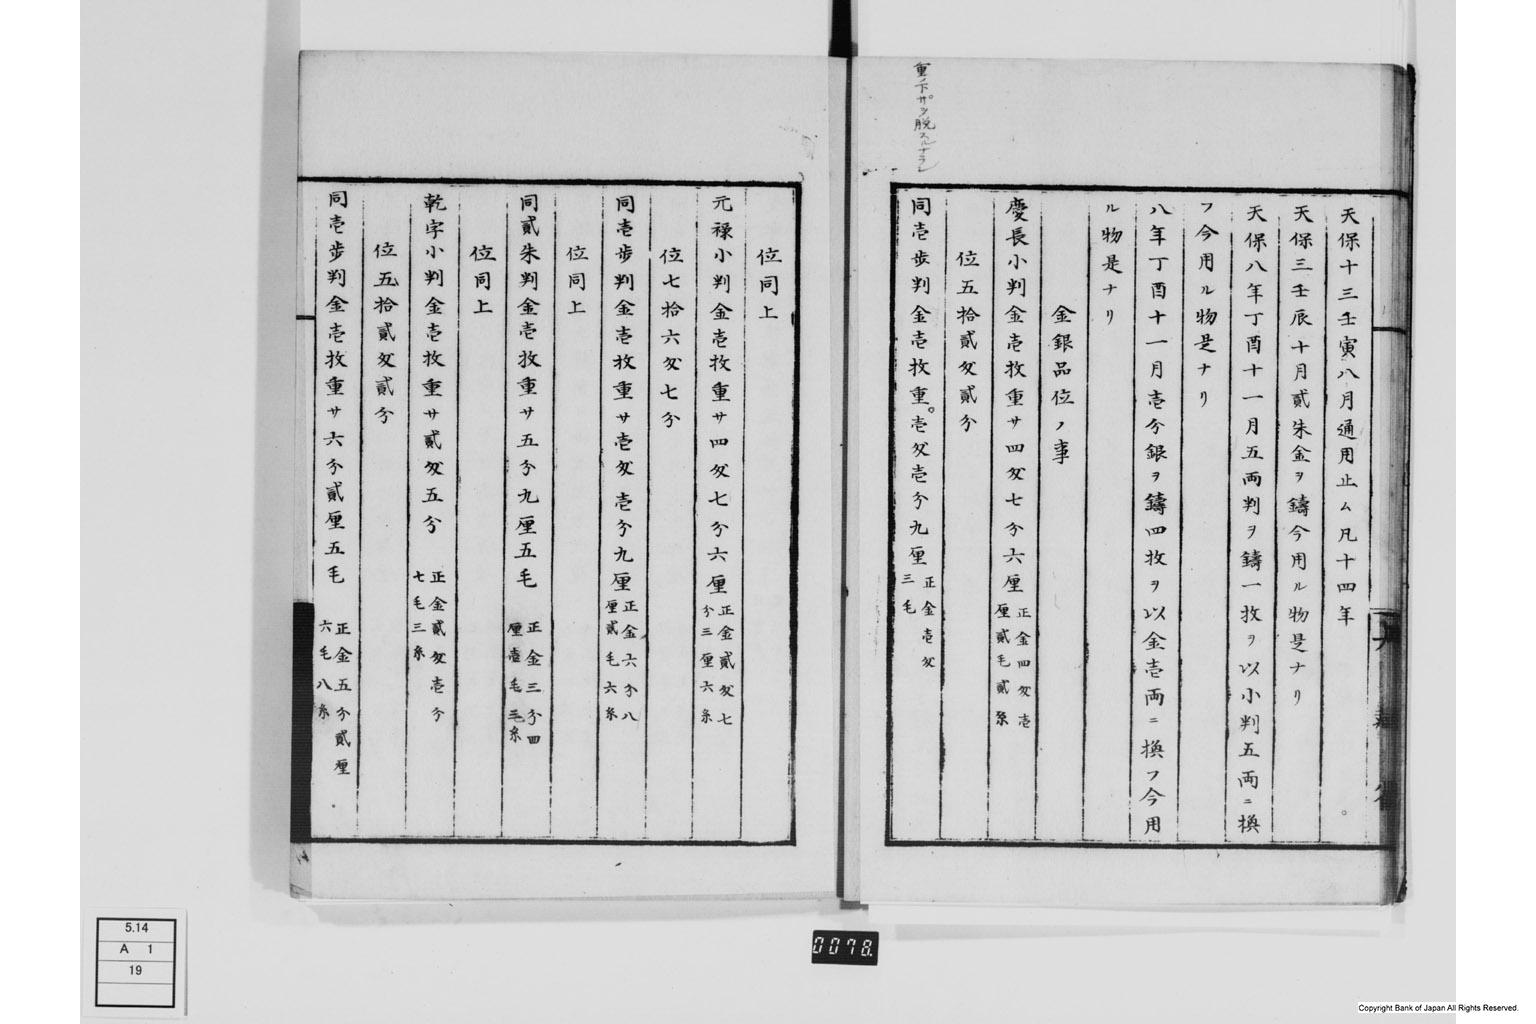 重ノ下サヲ脱スルナラン
天保十三壬寅八月通用止ム凡十四年
天保三壬辰十月貳朱金ヲ鑄今用ル物是ナリ
天保八年丁酉十一月五両判ヲ鑄一枚ヲ以小判五両ニ換
フ今用ル物是ナリ
八年丁酉十一月壱分銀ヲ鑄四枚ヲ以金壱両ニ換フ今用
ル物是ナリ
金銀品位ノ事
慶長小判金壱枚重サ四匁七分六厘 正金四匁壱
厘貳毛貳糸
位五拾貳匁貳分
同壱歩判金壱枚重。壱匁壱分九厘 正金壱匁
三毛
位同上
元禄小判金壱枚重サ四匁七分六厘 正金貳匁七
分三厘六糸
位七拾六匁七分
同壱歩判金壱枚重サ壱匁壱分九厘 正金六分八
厘貳毛六糸
位同上
同貳朱判金壱枚重サ五分九厘五毛 正金三分四
厘壱毛三糸
位同上
乾字小判金壱枚重サ貳匁五分 正金貳匁壱分
七毛三糸
位五拾貳匁貳分
同壱歩判金壱枚重サ六分貳厘五毛 正金五分貳厘
六毛八糸
5.14
A 1
19
0078
Copyright Bank of Japan All Rights Reserved.